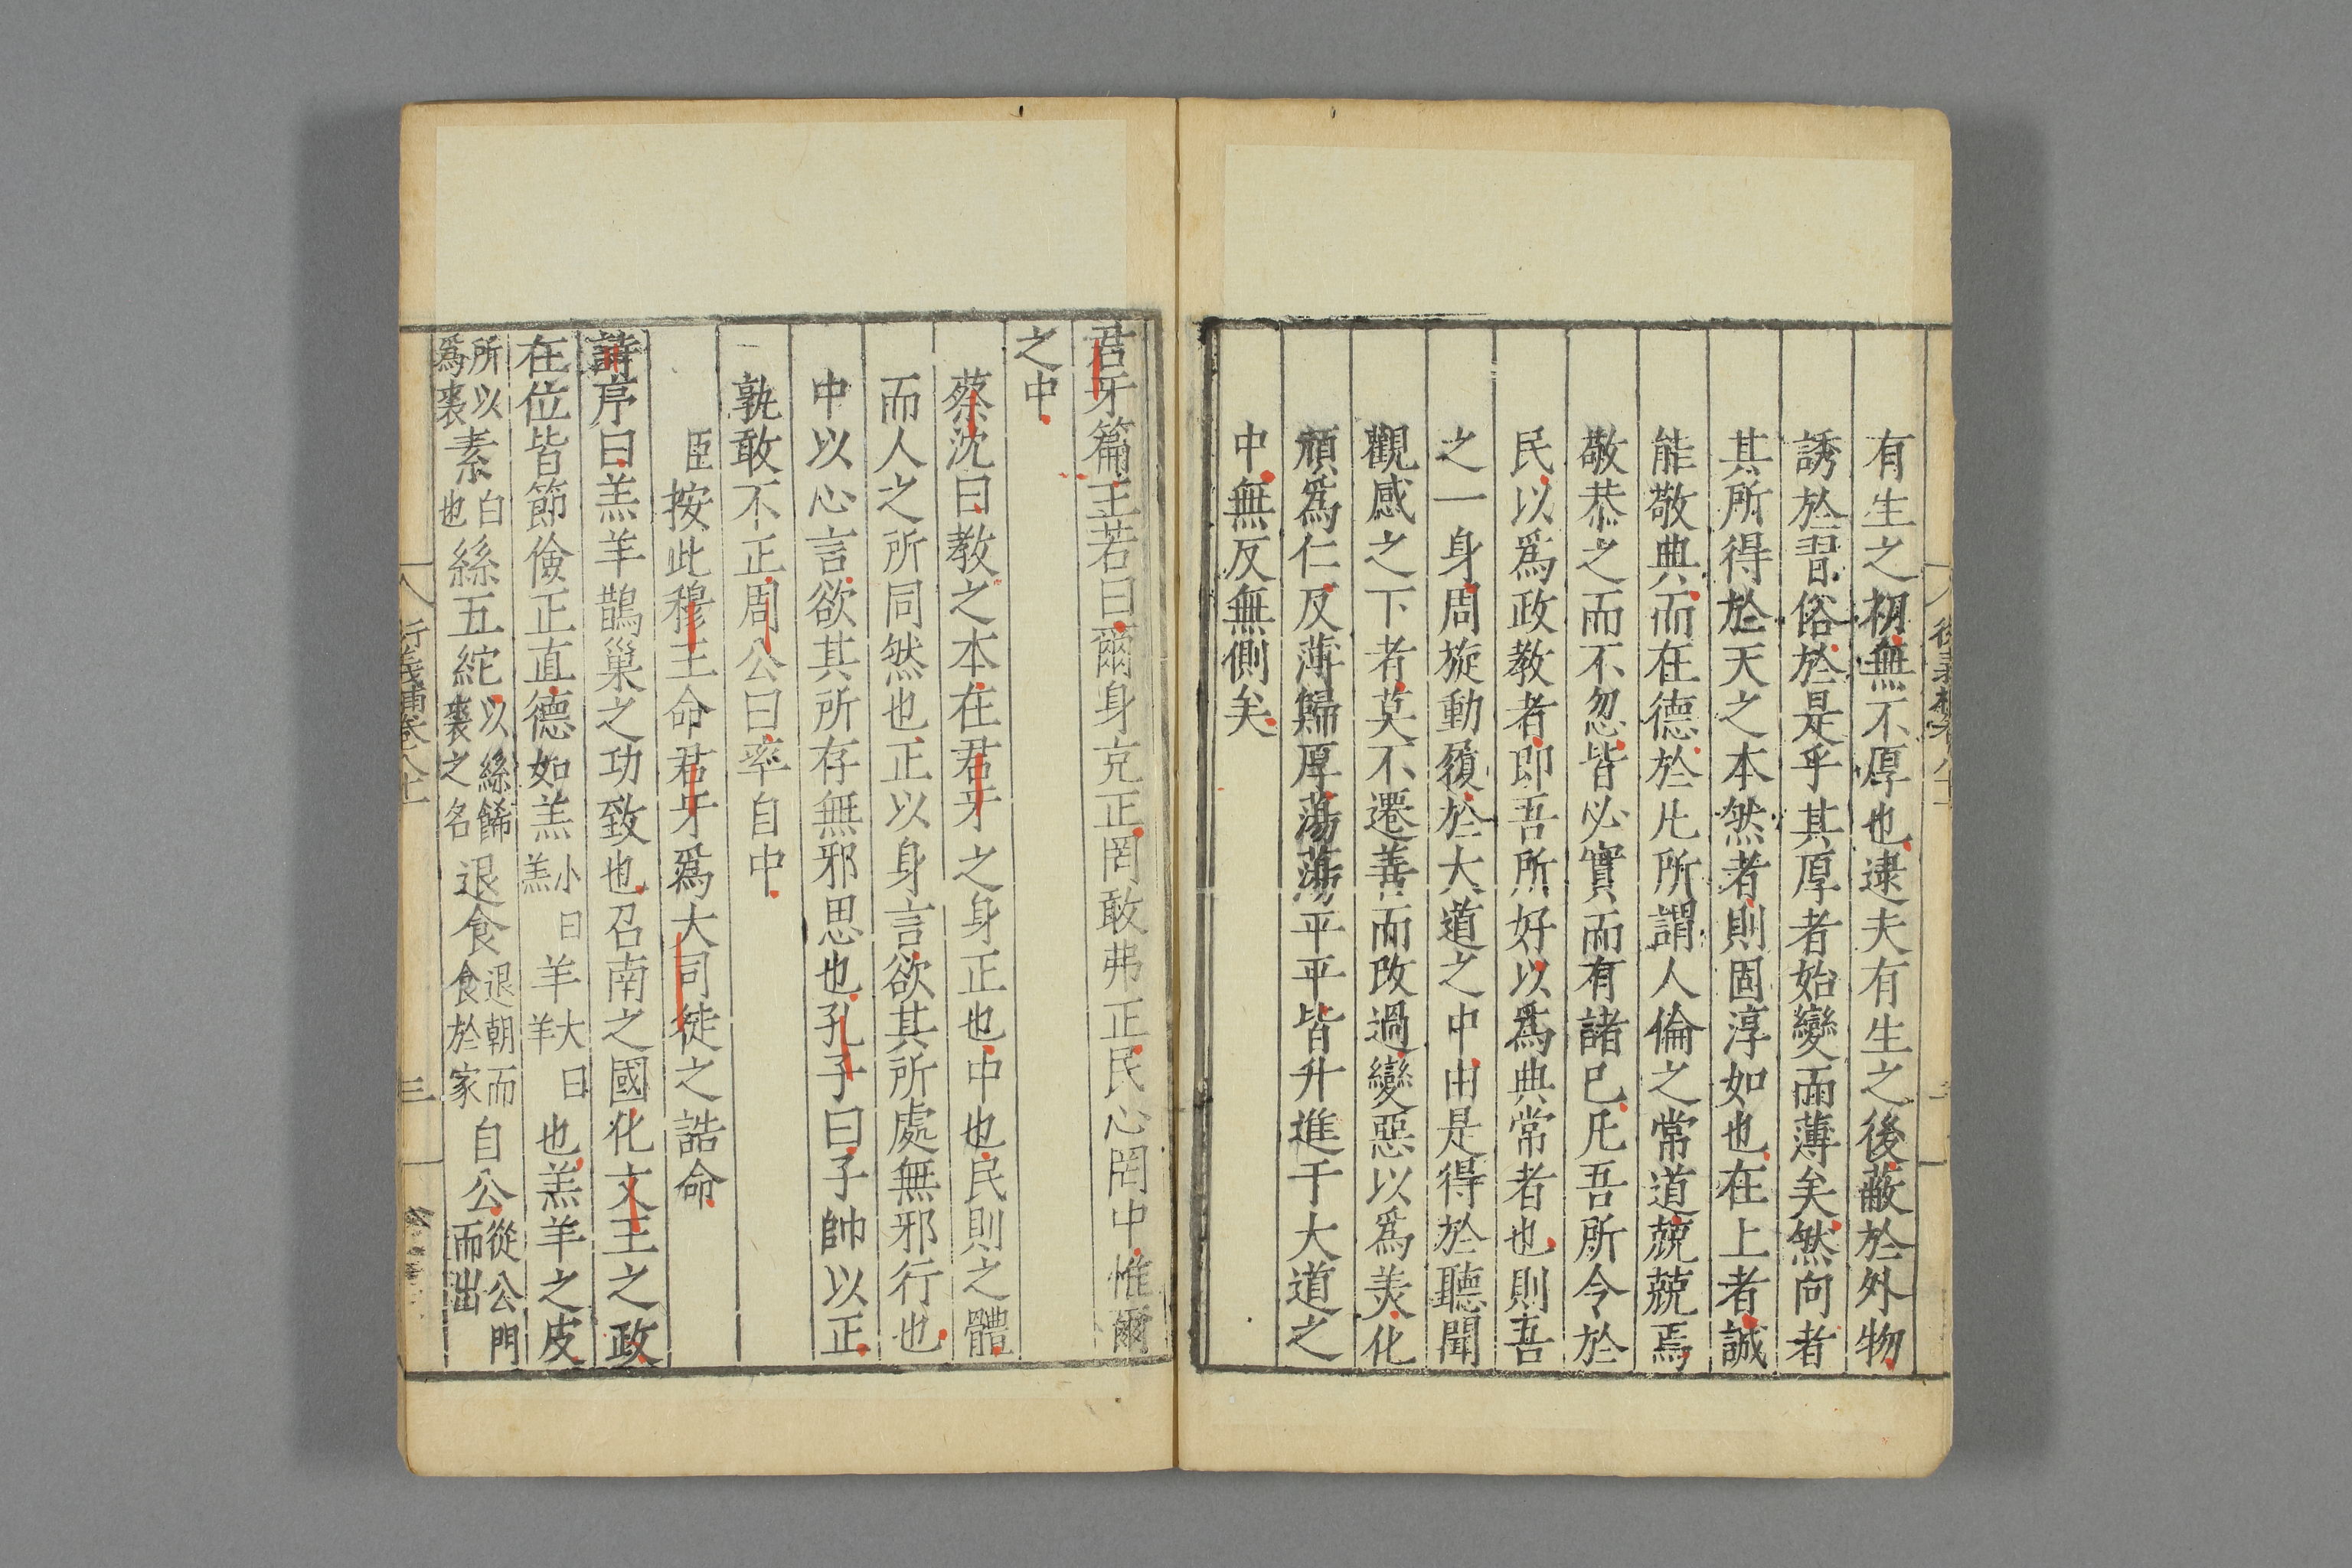 有生之初無不厚也逮夫有生之後蔽於外物
誘於習俗於是乎其厚者始變而薄矣然向者
其所得於天之本然者則固淳如也在上者誠
能敬典而在德於此所謂人倫之常道兢兢焉
敬恭之而不忽皆必實而有諸已凡吾所令於
民以爲政教者即吾所好以爲典常者也則吾
之一身周旋動履於大道之中由是得於聽聞
觀感之下者莫不遷善而改過變惡以爲美化
頑爲仁反薄歸厚蕩蕩平平皆升進于大道之
中無反無側矣
君牙篇王若曰爾身克正罔敢弗正民心罔中惟爾
之中
蔡沈曰教之本在君牙之身正也中也民則之體
而人之所同然也正以身言欲其所處無邪行也
中以心言欲其所存無邪思也孔子曰子帥以正
孰敢不正周公曰率自中
臣按此穆王命君牙爲大司徒之誥命
詩序曰羔羊鵲巢之功致也召南之國化文王之政
在位皆節儉正直德如羔小曰羔羊大曰羊也羔羊之皮
所以爲裘素白也絲五紽以絲飾裘之名退食退朝而食於家自公從公門而出
衍義補卷八十
三